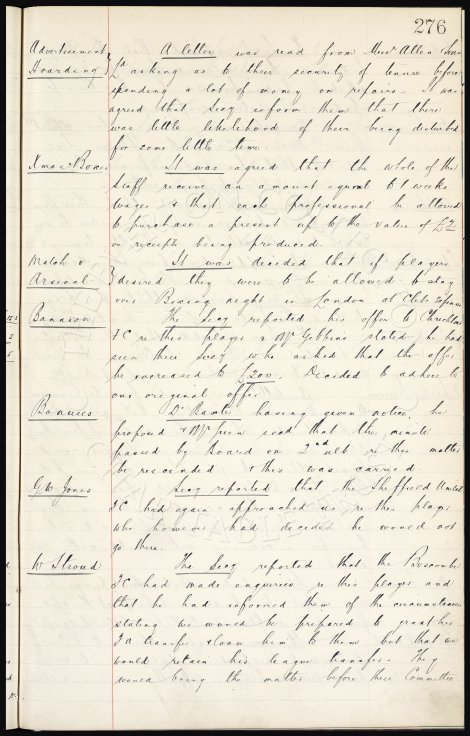 276
Advertisement A letter was read from Messrs Allen & Sons
Hoarding Ld asking as to their security of tenure before
spending a lot of money on repairs. It was
agreed that Secy inform them that there
was little likelihood of their being disturbed
for some little time
Xmas Boxes It was agreed that the whole of the
Staff receive an amount equal to 1 weeks
wages & that each professional be allowed
to purchase a present up to the value of £2
on receipts being produced.
Match v It was decided that if players
Arsenal desired they were to be allowed to stay
over Boxing night in London at Clubs expense
The Secy reported his offer to
FC re this player & Mr Gibbins stated he had
seen their Secy who asked that the offer
be increased to £300. Decided to adhere to
our original offer
Bonuses Dr having given notice, he
proposed & Mr secd that the minute
passed by Board on 2nd ult re this matter
be rescinded & this was carried
G W Jones Secy reported that the Sheffield United
FC had again approached us re this player
who however had decided he would not
go there.
W Stroud The Secy reported that the Boscombe
FC had made enquiries re this player and
that he had informed them of the circumstances
stating we would be prepared to grant his
FA transfer & loan him to them but that we
would retain his league transfer. They
would bring the matter before their Committee